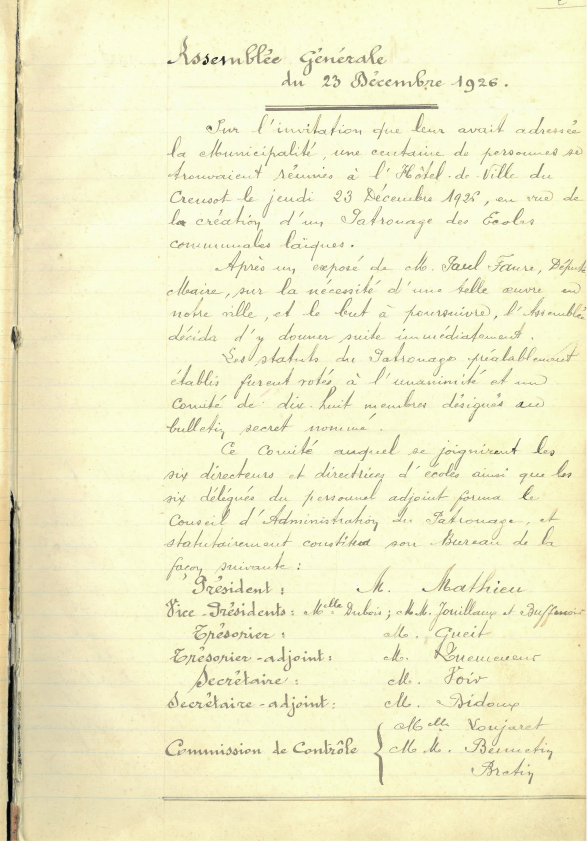 Assemblée Générale
du 23 Décembre 1926.
Sur l'invitation que leur avait adressée
la Municipalité, une centaine de personnes se
trouvaient réunies à l'Hôtel-de-Ville du
Creusot le jeudi 23 Décembre 1926, en vue de
la création d'un Patronage des Ecoles
communales laïques.
Après un exposé de M. Paul Faure, Député
Maire, sur la nécessité d'une telle œuvre en
notre ville, et le but à poursuivre, l'Assemblée
décida d'y donner suite immédiatement.
Les statuts du Patronage préalablement
établis furent votés à l'unanimité et un
Comité de dix-huit membres désignés au
bulletin secret nommé.
Ce Comité auquel se joignirent les
six directeurs et directrices d'écoles ainsi que les
six délégués du personnel adjoint forma le
Conseil d'Administration du Patronage, et
statutairement constitua son Bureau de la
façon suivante :
Président : M. Mathieu
Vice-Présidents : Melle Dubois ; M.M. Jouillaux et Buffenoir
Trésorier : M. Gueit
Trésorier-adjoint : M. Quemeneur
Secrétaire : M. Voir
Secrétaire-adjoint : M. Bidoux
Melle Voujaret
Commission de Contrôle M M.
Bratin